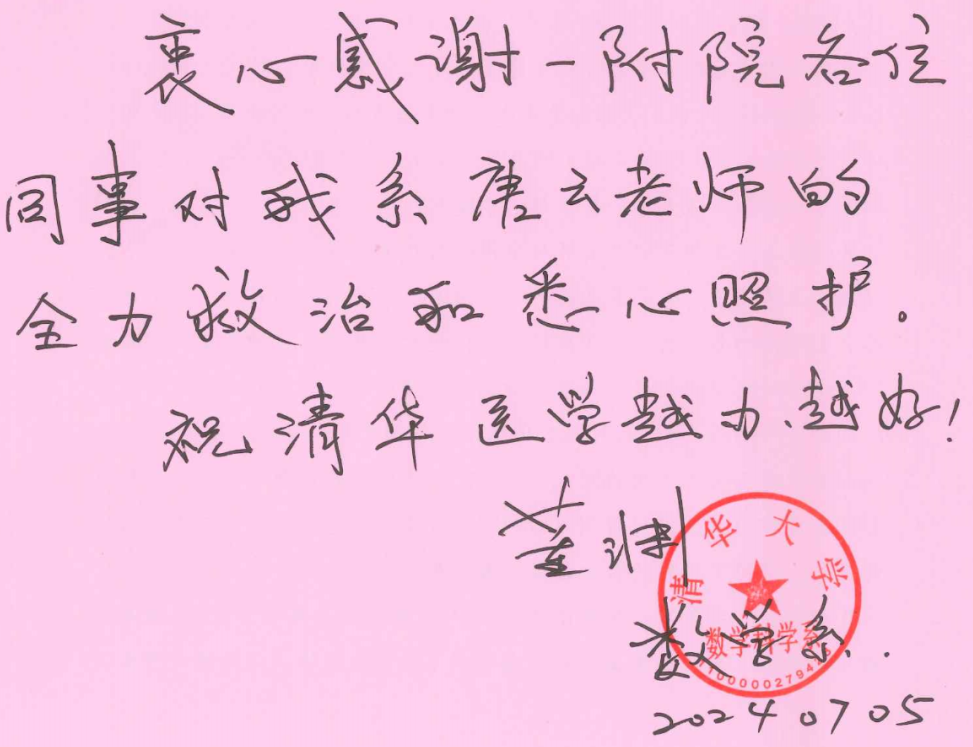 衷心感谢一附院各位
同事对我系唐云老师的
全力救治和悉心照护。
祝清华医学越办越好!
清华大学
数学科学系
数学系.
20240705